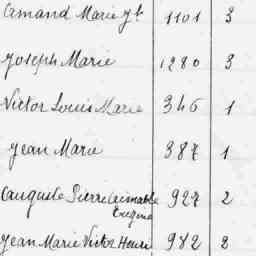 Armand Marie Jh 1101 3
Joseph Marie 1280 3
Victor Louis Marie 346 1
Jean Marie 387 1
Auguste Pierre Aimable 927 2
Eugène
Jean Marie Victor Henri 982 2